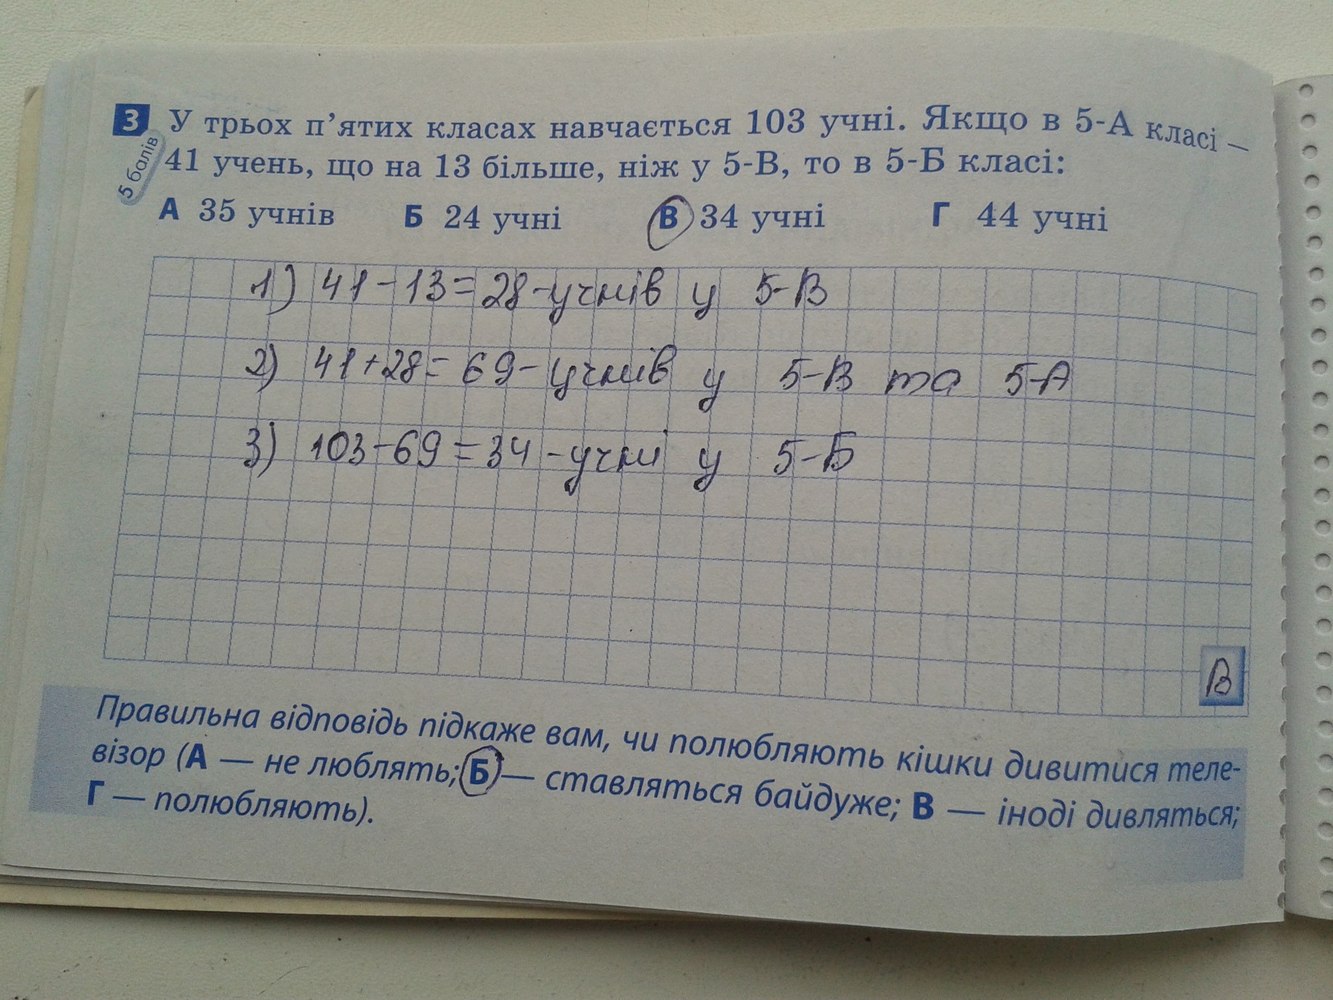 3 У трьох п’ятих класах навчається 103 учні. Якщо в 5-А класі –
5 балів
41 учень, що на 13 більше, ніж у 5-В, то в 5-Б класі:
А 35 учнів Б 24 учні В 34 учні Г 44 учні
1) 41-13=28-учнів у 5-В
2) 41+28=69-учнів у 5-В та 5-А
3) 103-69=34-учні у 5-Б
В
Правильна відповідь підкаже вам, чи полюбляють кішки дивитися теле-
візор (А — не люблять; Б — ставляться байдуже; В — іноді дивляться;
Г — полюбляють).